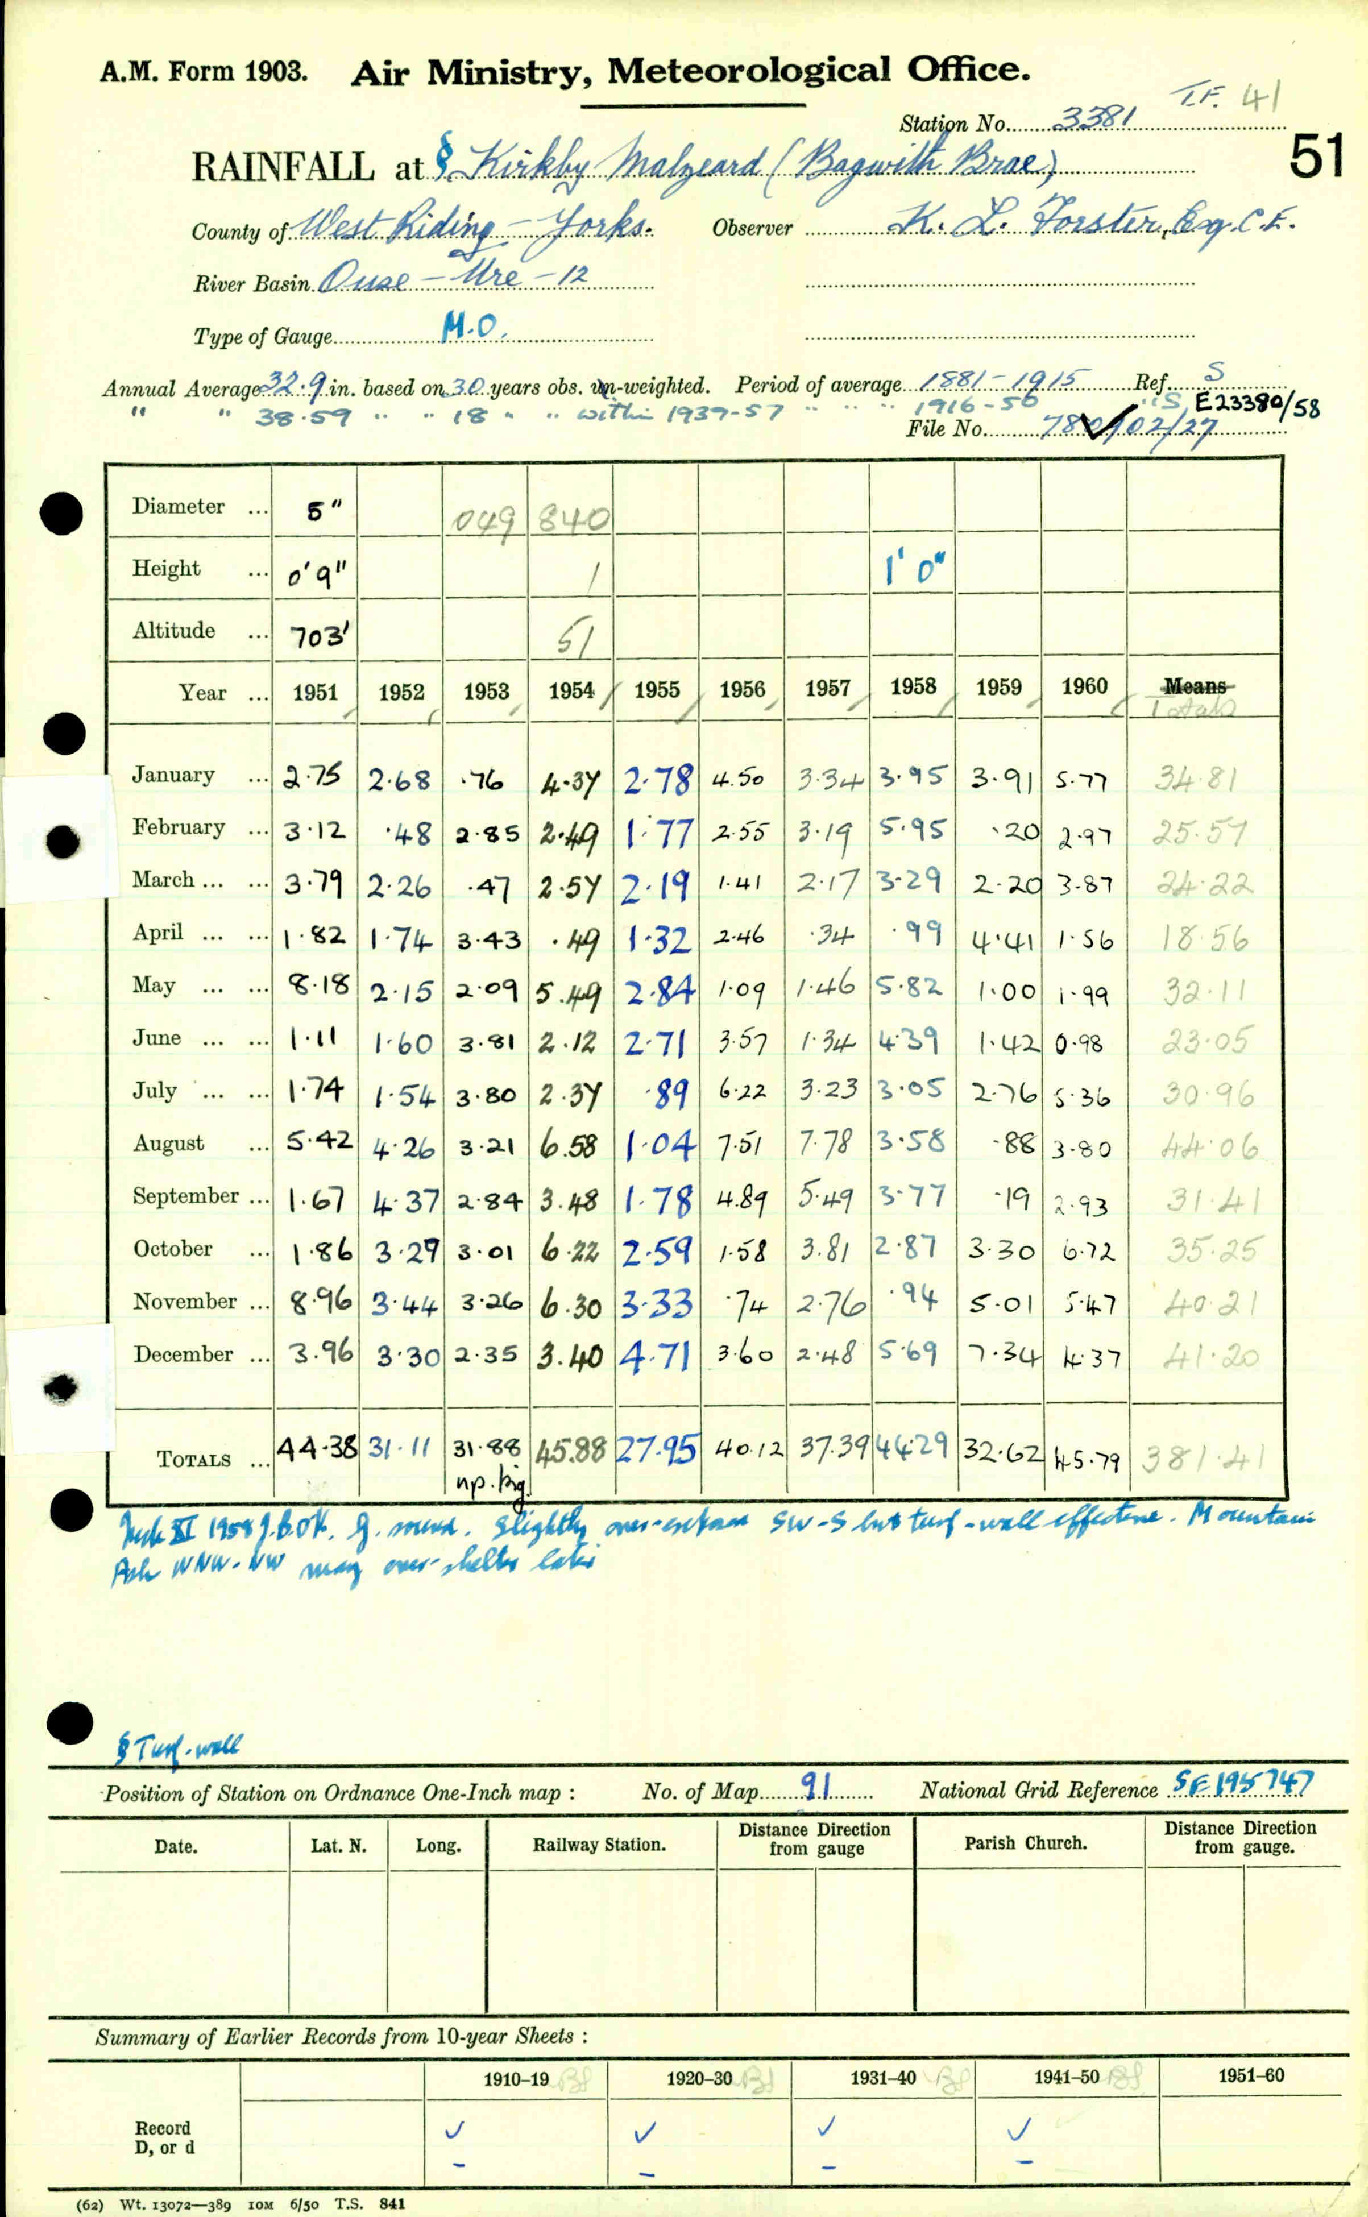 A.M. Form 1903. Air Ministry, Meteorological Office.
T.F. 41
Station No. 3381
51
RAINFALL at § Kirkby Malzeard (Bagwith Brae)
County of West Riding – Yorks. Observer K. L. Forster, Esq. C.E.
River Basin Ouse – Ure – 12
Type of Gauge M.O.
Annual Average 32.9 in. based on 30 years obs. un-weighted. Period of average 1881-1915 Ref. S
" " 38.59 " " 18 " " within 1939-57 " " " 1916-50 " S, E23380/58
File No. 780102/27
Diameter ... 5" 049 840
Height ... 0' 9" 1 1' 0"
Altitude ... 703' 51
Year ... 1951 1952 1953 1954 1955 1956 1957 1958 1959 1960 Means
Totals
January ... 2.75 2.68 .76 4.34 2.78 4.50 3.34 3.95 3.91 5.77 34.81
February ... 3.12 .48 2.85 2.49 1.77 2.55 3.19 5.95 .20 2.97 25.57
March ... ... 3.79 2.26 .47 2.54 2.19 1.41 2.17 3.29 2.20 3.87 24.22
April ... ... 1.82 1.74 3.43 .49 1.32 2.46 .34 .99 4.41 1.56 18.56
May ... ... 8.18 2.15 2.09 5.49 2.84 1.09 1.46 5.82 1.00 1.99 32.11
June ... ... 1.11 1.60 3.81 2.12 2.71 3.57 1.34 4.39 1.42 0.98 23.05
July ... ... 1.74 1.54 3.80 2.37 .89 6.22 3.23 3.05 2.76 5.36 30.96
August ... 5.42 4.26 3.21 6.58 1.04 7.51 7.78 3.58 .88 3.80 44.06
September ... 1.67 4.37 2.84 3.48 1.78 4.89 5.49 3.77 .19 2.93 31.41
October ... 1.86 3.29 3.01 6.22 2.59 1.58 3.81 2.87 3.30 6.72 35.25
November ... 8.96 3.44 3.26 6.30 3.33 .74 2.76 .94 5.01 5.47 40.21
December ... 3.96 3.30 2.35 3.40 4.71 3.60 2.48 5.69 7.34 4.37 41.20
TOTALS ... 44.38 31.11 31.88 45.88 27.95 40.12 37.39 44.29 32.62 45.79 381.41
XI 1958 slightly over-exposed SW-S but turf-wall effective. Mountain
Ash WNW-NW may over-shelter later
§ Turf-wall
Position of Station on Ordnance One-Inch map : No. of Map 91 National Grid Reference SE 195747
Date. Lat. N. Long. Railway Station. Distance Direction from gauge Parish Church. Distance Direction from gauge.
Summary of Earlier Records from 10-year Sheets :
1910–19 1920–30 1931–40 1941–50 1951–60
Record
D, or d
(62) Wt. 13072—389 10M 6/50 T.S. 841